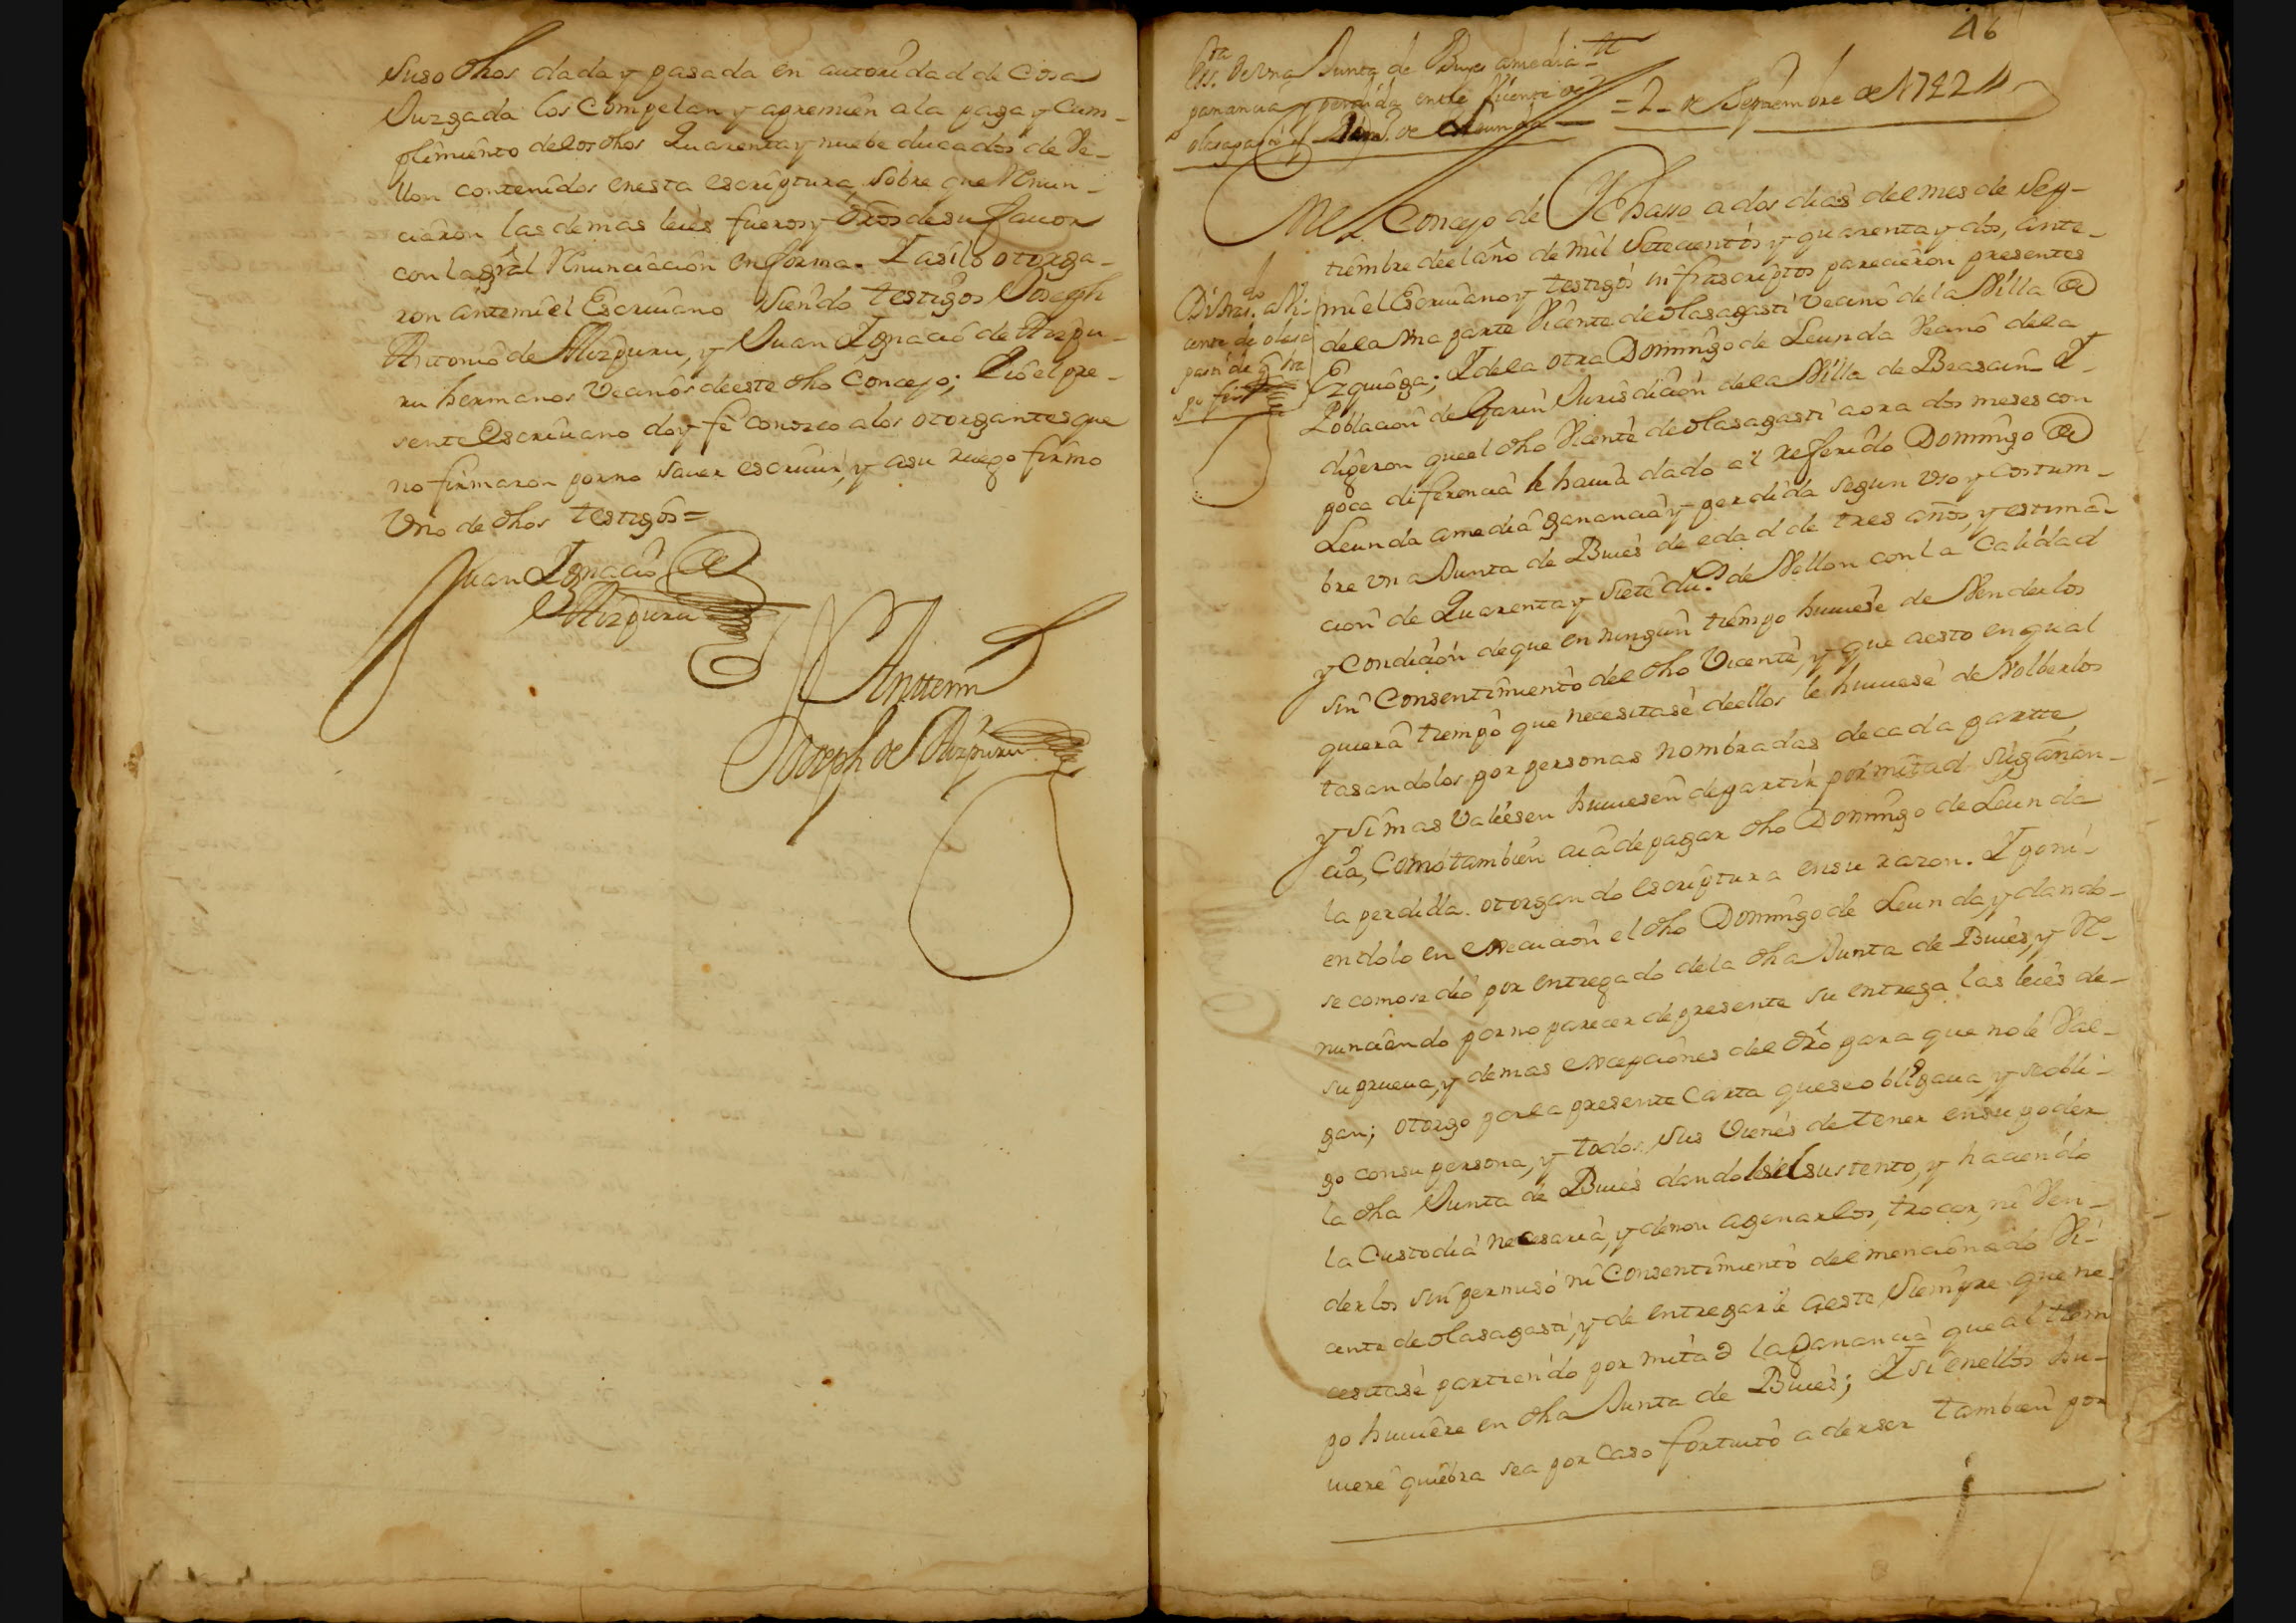 suso dhos dada y pasada en autoridad de Cosa
Juzgada los Compelan y apremien ala paga y Cum-
plimiento delos dhos Quarenta y nuebe ducados de Ve-
llon contenidos enesta escriptura, sobre que Renun-
ciaron las demas leies fueros y dros desu fauor
con la gral Renunciacion en forma. Y asilo otorga-
ron ante mi el Escriuano siendo testigos Joseph
Antonio de Aizpuru, y Juan Ignacio de Aizpu-
ru hermanos Vecinos deeste dho Concejo; Lio el pre-
sente Escriuano doy fe conozco alos otorgantes que
no firmaron por no sauer escriuir, y asu ruego firmo
Vno de dhos testigos=
Juan Ignacio de
Aizpuru
Antemi
Joseph de Aizpuru
46
Ess.ra de Vna Junta de Bueyes amedia
ganancia y perdida entre Vicente de
olasagasti y Domo. de Leunda
= 2 = de Septiembre de 1742
Nel Concejo de Ychasso a dos dias del mes de Sep-
tiembre deel año de mil setecientos y quarenta y dos, ante
mi el Escriuano y testigos infrascriptos parecieron presentes
dela Vna parte Vicente de olasagasti Vecino de la Villa de
Ezquioga; Y dela otra Domingo de Leunda Vecino dela
Poblacion de Garin Jurisdicion dela Villa de Beasain Y
digeron que el dho Vicente de olasagasti aora dos meses con
poca diferencia le hauia dado al referido Domingo de
Leunda amedia ganancia y perdida segun Vso y Costum-
bre vna Junta de Bueis de edad de tres años, y estima-
cion de Quarenta y siete du.s de Vellon con la Calidad
y Condicion deque en ningun tiempo huuiese de Venderlos
sin Consentimiento del dho Vicente, y que aesto en qual
quiera tiempo que necesitase deellos le huuiese de Volberlos
tasandolos por personas nombradas decada partte,
y si mas Valiesen huuiesen departir por mitad su ganan-
cia, como tambien aia de pagar dho Domingo de Leunda
la perdida. otorgando escriptura ensu razon. Y poni-
endolo en execucion el dho Domingo de Leunda, y dando-
se como se dio por entregado dela dha Junta de Bueis, y Re-
nunciendo por no parecer depresente su entrega las leies de-
su prueua, y demas excepciones del dro para que no le Val-
gan; otorgo por la presente Carta que se obligaua, y se obli-
go con su persona, y todos sus Vienes de tener ensu poder
la dha Junta de Bueis dandoles el sustento, y haciendo
la Custodia necesaria, y denon agenarlos, trocar, ni Ven-
derlos sin permiso ni Consentimiento del mencionado Vi-
cente de olasagasti, y de entregarle aeste siempre que ne-
cesitase partiendo por mitad la ganancia que al tiem
po huuiere en dha Junta de Bueis; Y si enellos hu-
uiere quiebra sea por caso fortuito a deser tambien por